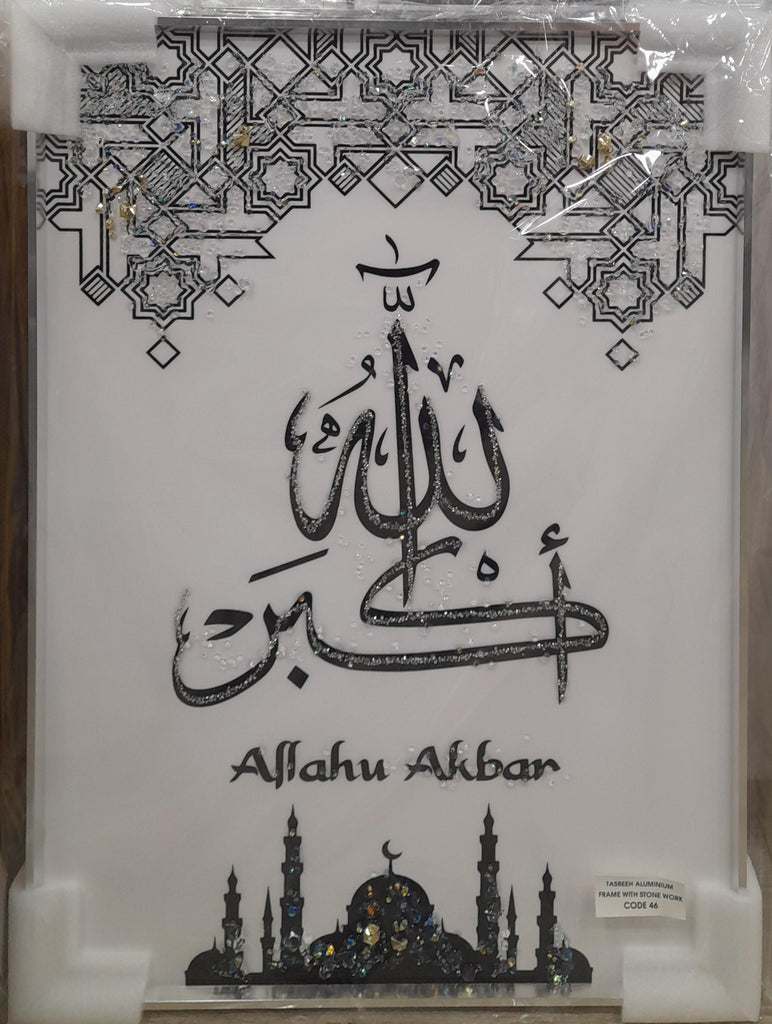 الله
أكبر
Allahu Akbar
TASBEEH ALUMINIUM
FRAME WITH STONE WORK
CODE 46